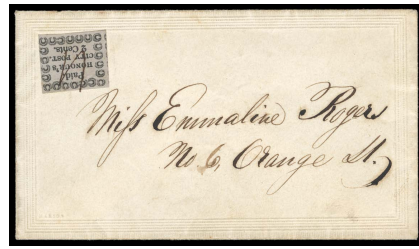 Paid
HONOUR'S
CITY POST.
2 Cents.
Miss Emmaline Rogers
No. 6, Orange St.